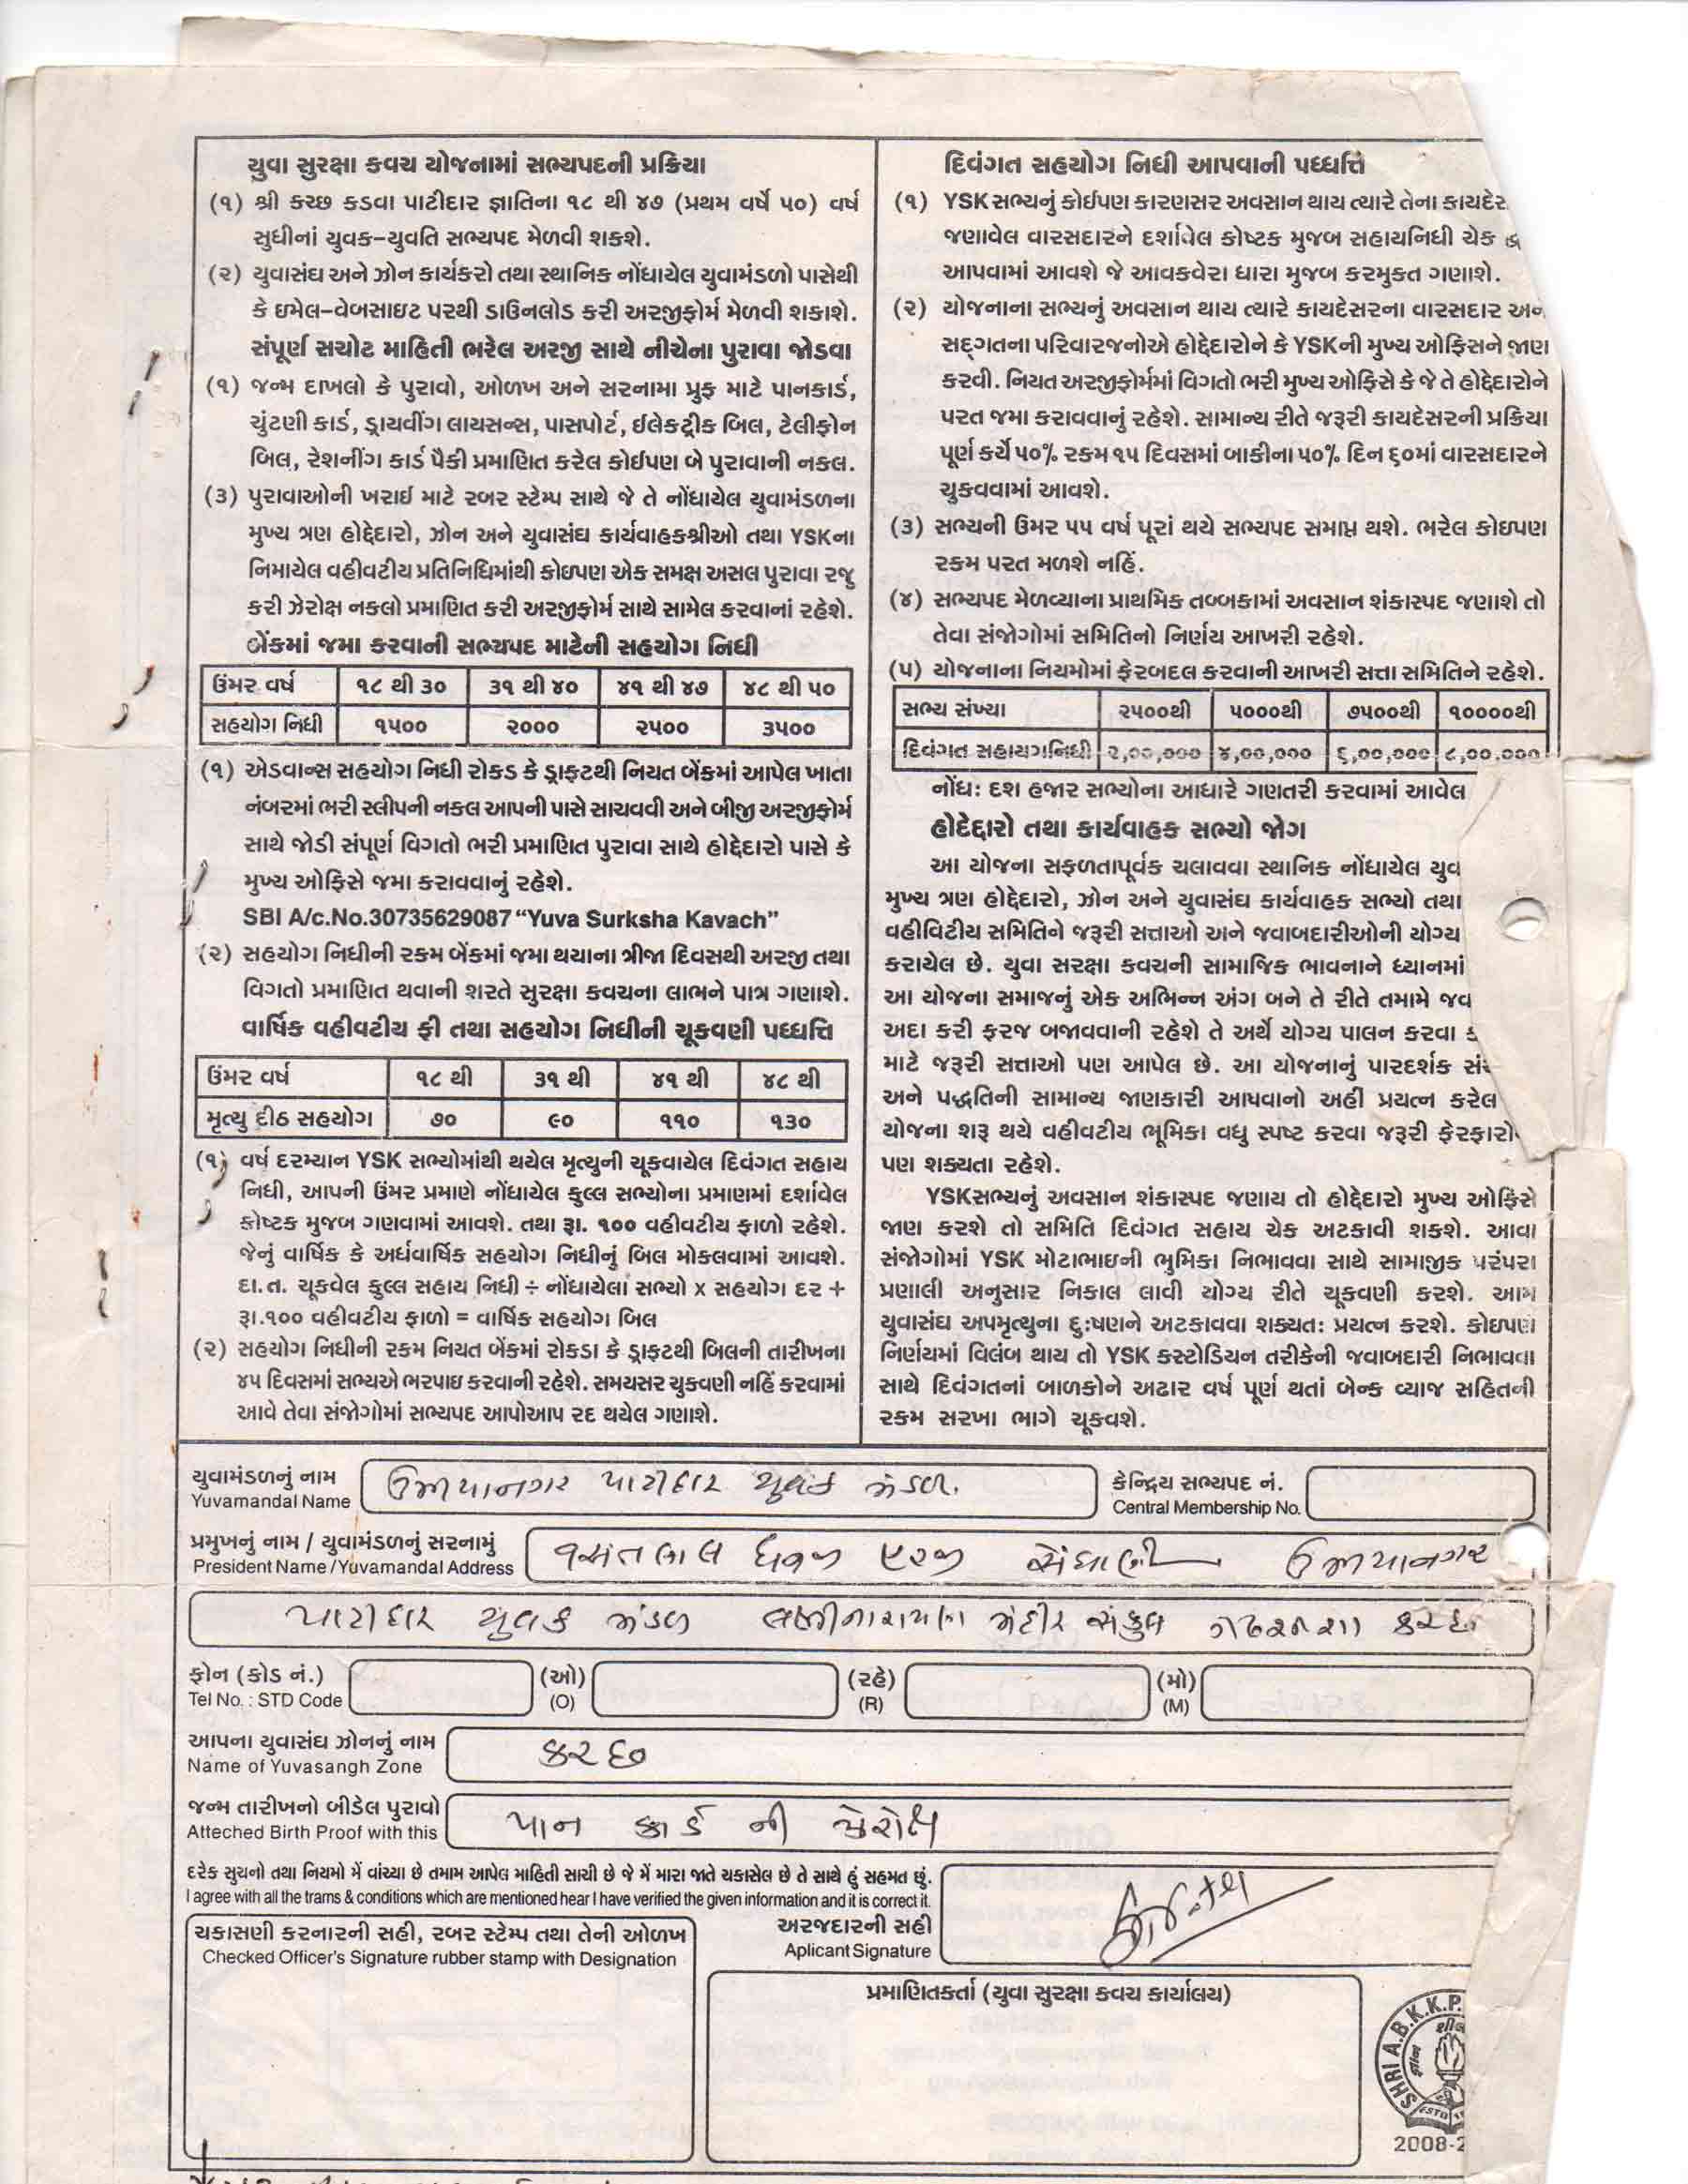 યુવા સુરક્ષા કવચ યોજનામાં સભ્યપદની પ્રક્રિયા
(૧) શ્રી કચ્છ કડવા પાટીદાર જ્ઞાતિના ૧૮ થી ૪૭ (પ્રથમ વર્ષે ૫૦) વર્ષ
સુધીનાં યુવક-યુવતિ સભ્યપદ મેળવી શકશે.
(૨) યુવાસંઘ અને ઝોન કાર્યકરો તથા સ્થાનિક નોંધાયેલ યુવામંડળો પાસેથી
કે ઇમેલ-વેબસાઇટ પરથી ડાઉનલોડ કરી અરજીફોર્મ મેળવી શકાશે.
સંપૂર્ણ સચોટ માહિતી ભરેલ અરજી સાથે નીચેના પુરાવા જોડવા
(૧) જન્મ દાખલો કે પુરાવો, ઓળખ અને સરનામા પ્રુફ માટે પાનકાર્ડ,
ચુંટણી કાર્ડ, ડ્રાયવીંગ લાયસન્સ, પાસપોર્ટ, ઈલેકટ્રીક બિલ, ટેલીફોન
બિલ, રેશનીંગ કાર્ડ પૈકી પ્રમાણિત કરેલ કોઈપણ બે પુરાવાની નકલ.
(૩) પુરાવાઓની ખરાઈ માટે રબર સ્ટેમ્પ સાથે જે તે નોંધાયેલ યુવામંડળના
મુખ્ય ત્રણ હોદ્દેદારો, ઝોન અને યુવાસંઘ કાર્યવાહકશ્રીઓ તથા YSKના
નિમાયેલ વહીવટીય પ્રતિનિધિમાંથી કોઇપણ એક સમક્ષ અસલ પુરાવા રજુ
કરી ઝેરોક્ષ નકલો પ્રમાણિત કરી અરજીફોર્મ સાથે સામેલ કરવાનાં રહેશે.
બેંકમાં જમા કરવાની સભ્યપદ માટેની સહયોગ નિધી
ઉંમર વર્ષ ૧૮ થી ૩૦ ૩૧ થી ૪૦ ૪૧ થી ૪૭ ૪૮ થી ૫૦
સહયોગ નિધી ૧૫૦૦ ૨૦૦૦ ૨૫૦૦ ૩૫૦૦
(૧) એડવાન્સ સહયોગ નિધી રોકડ કે ડ્રાફટથી નિયત બેંકમાં આપેલ ખાતા
નંબરમાં ભરી સ્લીપની નકલ આપની પાસે સાચવવી અને બીજી અરજીફોર્મ
સાથે જોડી સંપૂર્ણ વિગતો ભરી પ્રમાણિત પુરાવા સાથે હોદ્દેદારો પાસે કે
મુખ્ય ઓફિસે જમા કરાવવાનું રહેશે.
SBI A/c.No.30735629087 “Yuva Surksha Kavach”
(૨) સહયોગ નિધીની રકમ બેંકમાં જમા થયાના ત્રીજા દિવસથી અરજી તથા
વિગતો પ્રમાણિત થવાની શરતે સુરક્ષા કવચના લાભને પાત્ર ગણાશે.
વાર્ષિક વહીવટીય ફી તથા સહયોગ નિધીની ચૂકવણી પધ્ધત્તિ
ઉંમર વર્ષ ૧૮ થી ૩૧ થી ૪૧ થી ૪૮ થી
મૃત્યુ દીઠ સહયોગ ૭૦ ૯૦ ૧૧૦ ૧૩૦
(૧) વર્ષ દરમ્યાન YSK સભ્યોમાંથી થયેલ મૃત્યુની ચૂકવાયેલ દિવંગત સહાય
નિધી, આપની ઉંમર પ્રમાણે નોંધાયેલ કુલ્લ સભ્યોના પ્રમાણમાં દર્શાવેલ
કોષ્ટક મુજબ ગણવામાં આવશે. તથા રૂા. ૧૦૦ વહીવટીય ફાળો રહેશે.
જેનું વાર્ષિક કે અર્ધવાર્ષિક સહયોગ નિધીનું બિલ મોકલવામાં આવશે.
દા.ત. ચૂકવેલ કુલ્લ સહાય નિધી ÷ નોંધાયેલા સભ્યો x સહયોગ દર +
રૂા.૧૦૦ વહીવટીય ફાળો = વાર્ષિક સહયોગ બિલ
(૨) સહયોગ નિધીની રકમ નિયત બેંકમાં રોકડા કે ડ્રાફટથી બિલની તારીખના
૪૫ દિવસમાં સભ્યએ ભરપાઇ કરવાની રહેશે. સમયસર ચુકવણી નહિં કરવામાં
આવે તેવા સંજોગોમાં સભ્યપદ આપોઆપ રદ થયેલ ગણાશે.
દિવંગત સહયોગ નિધી આપવાની પધ્ધત્તિ
(૧) YSK સભ્યનું કોઈપણ કારણસર અવસાન થાય ત્યારે તેના
જણાવેલ વારસદારને દર્શાવેલ કોષ્ટક મુજબ સહાયનિધી ચેક
આપવામાં આવશે જે આવકવેરા ધારા મુજબ કરમુક્ત ગણાશે.
(૨) યોજનાના સભ્યનું અવસાન થાય ત્યારે કાયદેસરના વારસદાર
સદ્‌ગતના પરિવારજનોએ હોદ્દેદારોને કે YSKની મુખ્ય ઓફિસને જાણ
કરવી. નિયત અરજીફોર્મમાં વિગતો ભરી મુખ્ય ઓફિસે કે જે તે હોદ્દેદારોને
પરત જમા કરાવવાનું રહેશે. સામાન્ય રીતે જરૂરી કાયદેસરની પ્રક્રિયા
પૂર્ણ કર્યે ૫૦% રકમ ૧૫ દિવસમાં બાકીના ૫૦% દિન ૬૦માં વારસદારને
ચુકવવામાં આવશે.
(૩) સભ્યની ઉમર ૫૫ વર્ષ પૂરાં થયે સભ્યપદ સમાપ્ત થશે. ભરેલ કોઇપણ
રકમ પરત મળશે નહિં.
(૪) સભ્યપદ મેળવ્યાના પ્રાથમિક તબ્બકામાં અવસાન શંકાસ્પદ જણાશે તો
તેવા સંજોગોમાં સમિતિનો નિર્ણય આખરી રહેશે.
(૫) યોજનાના નિયમોમાં ફેરબદલ કરવાની આખરી સત્તા સમિતિને રહેશે.
સભ્ય સંખ્યા ૨૫૦૦થી ૫૦૦૦થી ૭૫૦૦થી ૧૦૦૦૦થી
દિવંગત સહાયગનિધી ૨,૦૦,૦૦૦ ૪,૦૦,૦૦૦ ૬,૦૦,૦૦૦ ૮,૦૦,૦૦૦
નોંધ: દશ હજાર સભ્યોના આધારે ગણતરી કરવામાં આવેલ
હોદેદ્દારો તથા કાર્યવાહક સભ્યો જોગ
આ યોજના સફળતાપૂર્વક ચલાવવા સ્થાનિક નોંધાયેલ
મુખ્ય ત્રણ હોદ્દેદારો, ઝોન અને યુવાસંઘ કાર્યવાહક સભ્યો તથા
વહીવિટીય સમિતિને જરૂરી સત્તાઓ અને જવાબદારીઓની યોગ્ય
કરાયેલ છે. યુવા સરક્ષા કવચની સામાજિક ભાવનાને ધ્યાનમાં
આ યોજના સમાજનું એક અભિન્ન અંગ બને તે રીતે તમામે
અદા કરી ફરજ બજાવવાની રહેશે તે અર્થે યોગ્ય પાલન કરવા
માટે જરૂરી સત્તાઓ પણ આપેલ છે. આ યોજનાનું પારદર્શક
અને પદ્ધતિની સામાન્ય જાણકારી આપવાનો અહીં પ્રયત્ન કરેલ
યોજના શરૂ થયે વહીવટીય ભૂમિકા વધુ સ્પષ્ટ કરવા જરૂરી ફેરફારો
પણ શક્યતા રહેશે.
YSKસભ્યનું અવસાન શંકાસ્પદ જણાય તો હોદ્દેદારો મુખ્ય ઓફિસે
જાણ કરશે તો સમિતિ દિવંગત સહાય ચેક અટકાવી શકશે. આવા
સંજોગોમાં YSK મોટાભાઇની ભુમિકા નિભાવવા સાથે સામાજીક પરંપરા
પ્રણાલી અનુસાર નિકાલ લાવી યોગ્ય રીતે ચૂકવણી કરશે. આમ
યુવાસંઘ અપમૃત્યુના દુ:ષણને અટકાવવા શક્યત: પ્રયત્ન કરશે. કોઇપણ
નિર્ણયમાં વિલંબ થાય તો YSK કસ્ટોડિયન તરીકેની જવાબદારી નિભાવવા
સાથે દિવંગતનાં બાળકોને અઢાર વર્ષ પૂર્ણ થતાં બેન્ક વ્યાજ સહિતની
રકમ સરખા ભાગે ચૂકવશે.
યુવામંડળનું નામ ઉમીયાનગર પાટીદાર યુવક મંડળ. કેન્દ્રિય સભ્યપદ નં.
Yuvamandal Name Central Membership No.
પ્રમુખનું નામ / યુવામંડળનું સરનામું વસંતલાલ ધનજી સેંઘાણી ઉમીયાનગર
President Name / Yuvamandal Address
પાટીદાર યુવક મંડળ લક્ષ્મીનારાયણ મંદીર સંકુલ ગઢશીશા કચ્છ
ફોન (કોડ નં.) (ઓ) (રહે) (મો)
Tel No. : STD Code (O) (R) (M)
આપના યુવાસંઘ ઝોનનું નામ કચ્છ
Name of Yuvasangh Zone
જન્મ તારીખનો બીડેલ પુરાવો પાન કાર્ડ ની ઝેરોક્ષ
Atteched Birth Proof with this
દરેક સુચનો તથા નિયમો મેં વાંચ્યા છે તમામ આપેલ માહિતી સાચી છે જે મેં મારા જાતે ચકાસેલ છે તે સાથે હું સહમત છું.
I agree with all the trams & conditions which are mentioned hear I have verified the given information and it is correct it.
અરજદારની સહી
Aplicant Signature
ચકાસણી કરનારની સહી, રબર સ્ટેમ્પ તથા તેની ઓળખ
Checked Officer's Signature rubber stamp with Designation
પ્રમાણિતકર્તા (યુવા સુરક્ષા કવચ કાર્યાલય)
SHRI A.B.K.K.P.
ESTD
2008-2